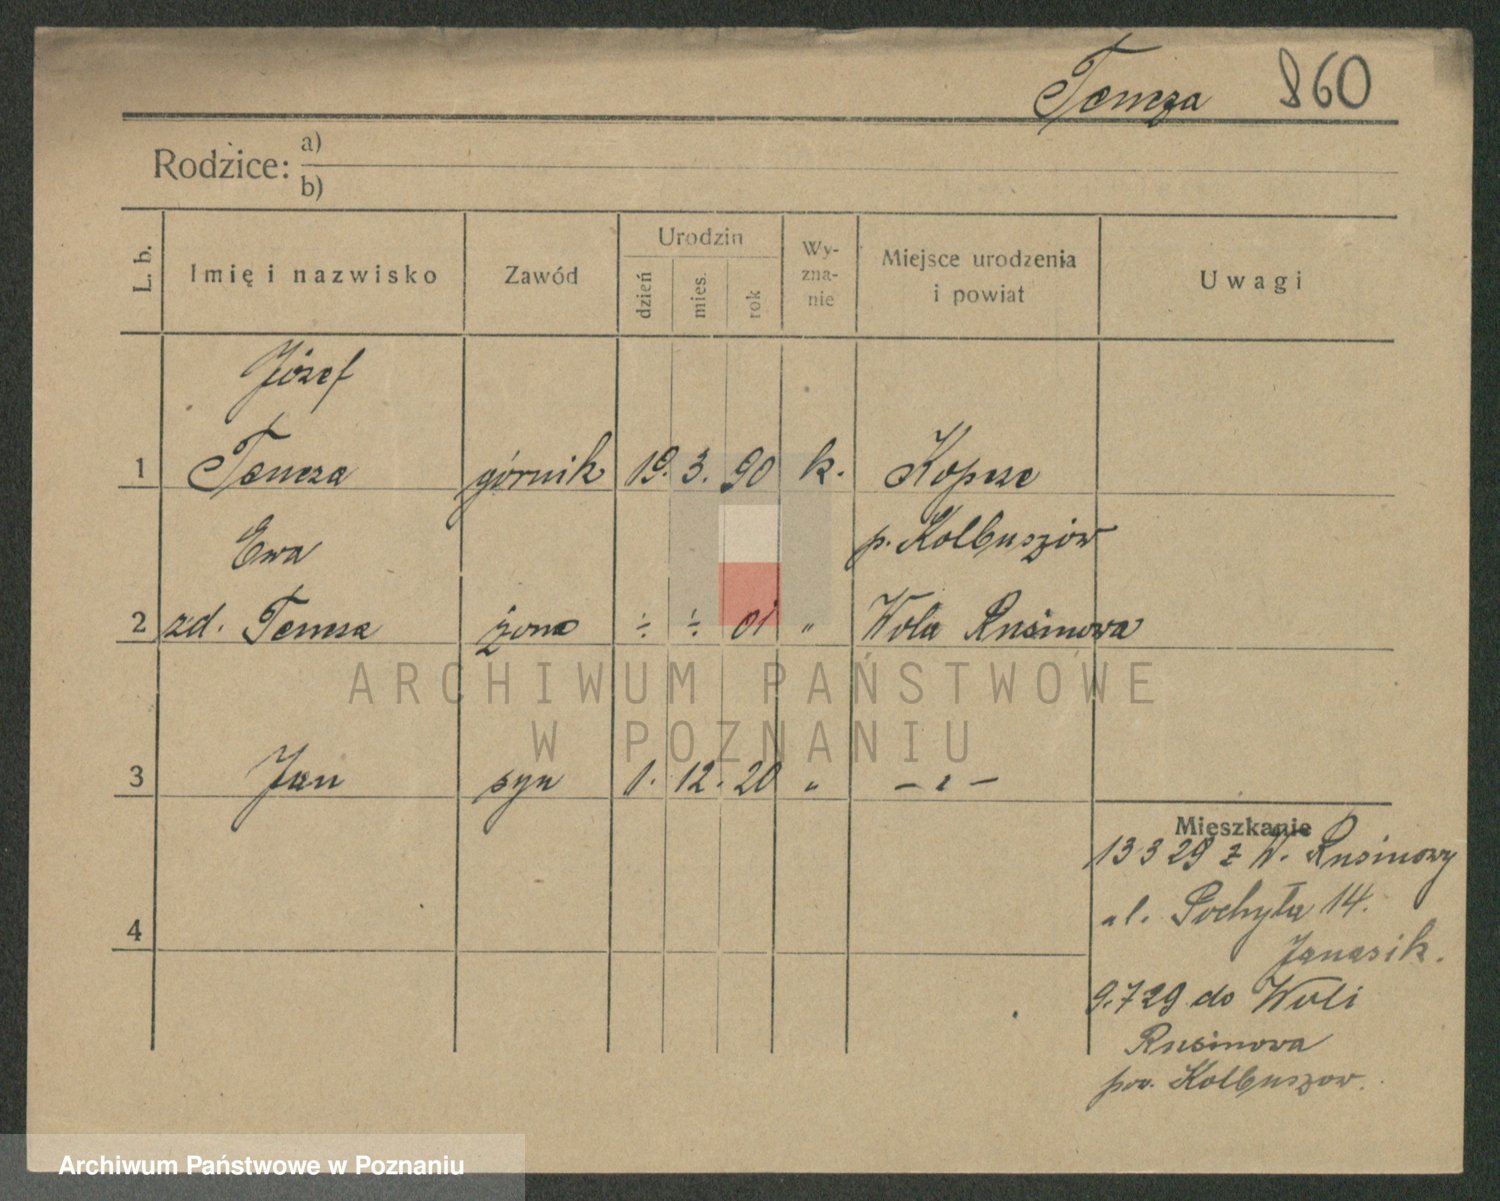 Tencza 860
Rodzice: a)
b)
L. b. Imię i nazwisko Zawód Urodzin dzień mies. rok Wy-zna-nie Miejsce urodzenia i powiat Uwagi
Józef
1 Tencza górnik 19. 3. 90 k. Kopcze
Ewa p. Kolbuszów
2 zd. Tencza żona ÷ ÷ 01 „ Wola Rusinowa
ARCHIWUM PAŃSTWOWE
W POZNANIU
3 Jan syn 1. 12. 20 „ – „ –
Mieszkanie
13 3 29 z W. Rusinowy
ul. Pochyła 14.
Janasik.
4
9.7 29 do Woli
Rusinowa
pow. Kolbuszow.
Archiwum Państwowe w Poznaniu